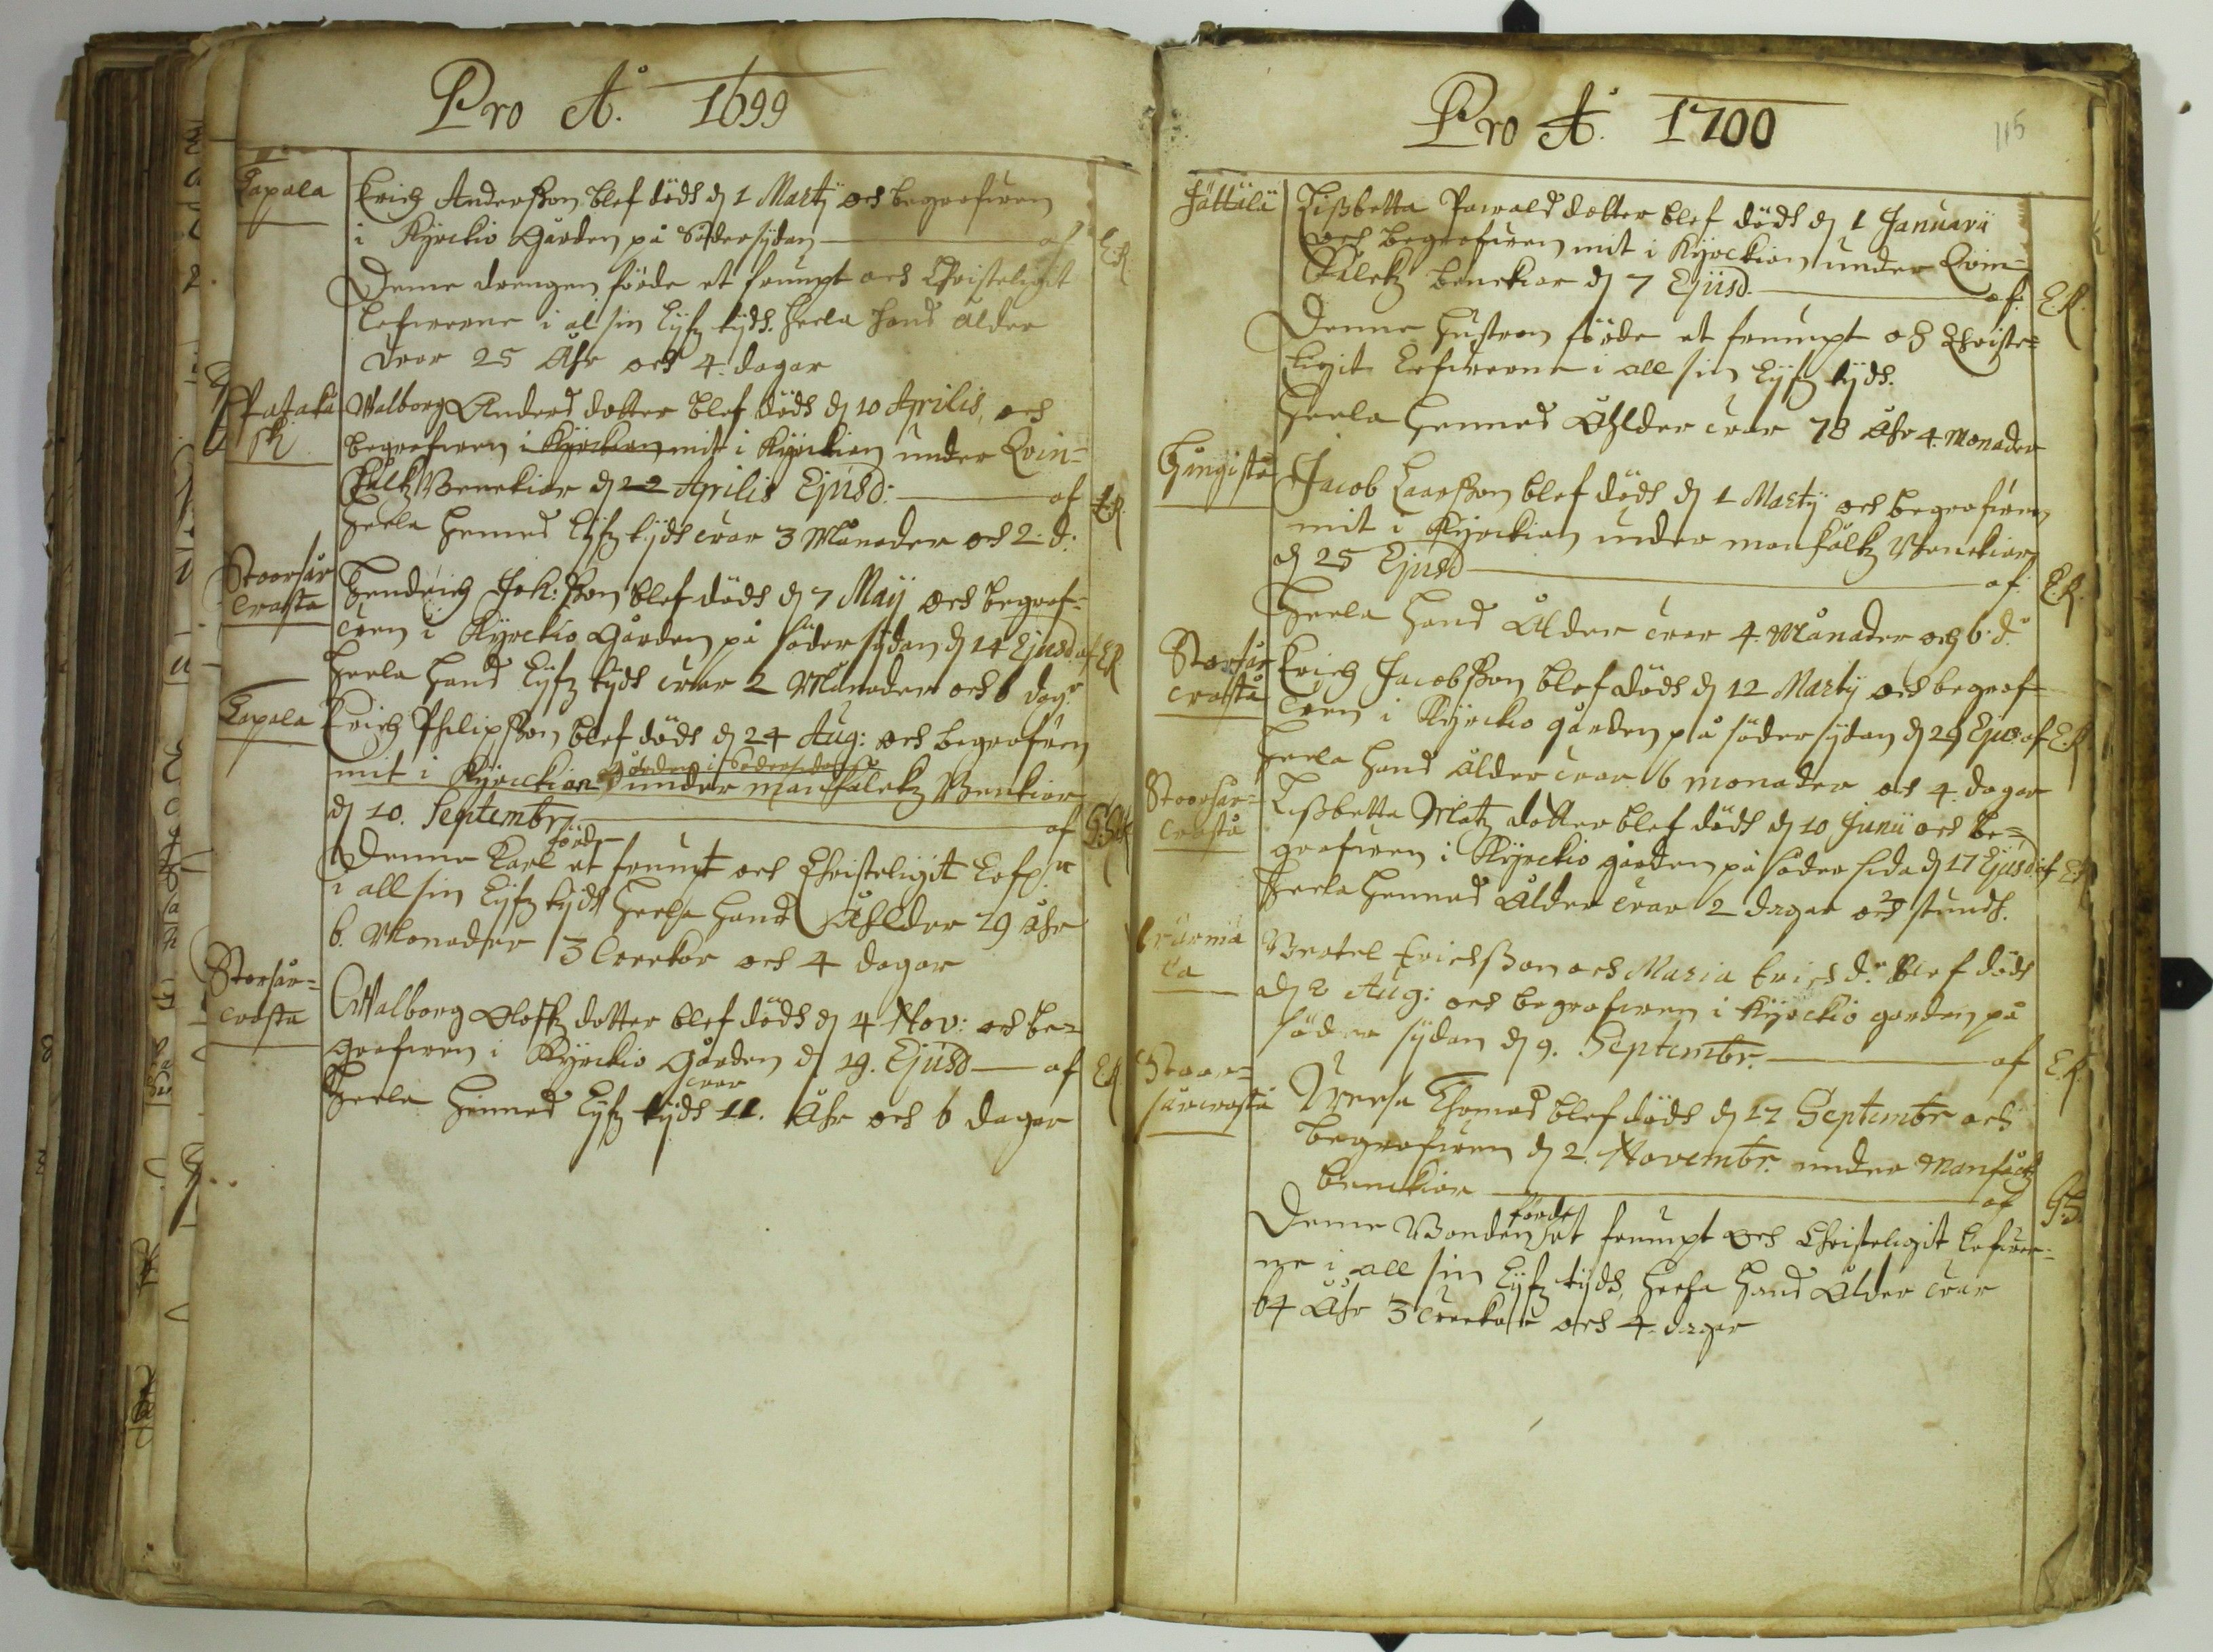 Pro A:o 1699
Tapala
Erich Anderßon blef dödh d. 1 Martÿ och begrafwen
i Kyrckio Gården på Södersydan af E.R.
Denne drengen förde et fromt och Christeligit
Lefwerne i al sin Lijfz tijdh. heela hans ålder
war 25 Åhr och 4. dagar
Walborg Anders dotter blef dödh d. 10 Aprilis, och
begrafwen i Kyrckian mit i Kyrckian under Qwin=
fålkz Benckiar d. 22 Aprilis Ejusd: af E.R.
heela hennes Lijfz tijdh war 3 Månader och 2. d:
Stoorsar
wasta
Hendrich Joh:ßon blef dödh d. 7 Maij och begraf=
wen i Kyrckio Gården på söder sydan d. 14 Ejusd. af E.R.
heela hans Lijfz tijdh war 2 Månader och 6 dag:r
Tapala
Erich Philipßon blef dödh d. 24 Aug: och begrafwen
gården i Södersidan
mit i Kyrckian under manfålckz Benkiar
d. 10. Septembr. af
förde
Denne Karl et fromt och Christeligit Lefw:e
i all sin Lijfz tijdh heela hans Åhlder 29 åhr
6. Monader 3 weekor och 4 dagar
Storsår=
wasta
Walborg Oloffz dotter blef dödh d. 4 Nov: och be=
grafwen i Kyrckio Gården d. 19. Ejusd af E.R.
war
heela hennes Lijfz tijdh 11. Åhr och 6 dagar
Pro A:o 1700
115
Jättälä
Lißbetta Pawals dotter blef dödh d. 1 Januarii
och begrafwen mit i Kyrckian under Qwin=
fålckz benckiar d. 7 Ejusd. af: E.R.
Denne hustron förde et fromt och Christe=
ligit Lefwerne i all sin Lijfz tijdh.
heela hennes Åhlder war 78 åhr 4. monader
Gungista
Jacob Larßon blef dödh d. 1 Martÿ och begrafwen
mit i Kyrckian under manfålkz Benckiar
d. 25 Ejusd af: E.R.
heela hans Ålder war 4. Månader och 6. d:r
Storsår
wasta
Erich Jacobßon blef dödh d. 12 Martÿ och begraf=
wen i Kyrckio gården på söder sydan d. 29 Ejus: af E.R.
heela hans ålder war 6 monader och 4. dagar
Stoorsår=
wasta
Lißbetta Matz dotter blef dödh d. 10 Junii och be=
grafwen i Kyrckio gården på söder sida d. 17 Ejusd: af E.R.
heela hennes Ålder war 2 dagar och 2 stundh.
Bertel Erichßon och Maria Erichs d:r blef dödh
d. 2 Aug: och begrafwen i Kyrckio garden på
söder sydan d. 9. Septembr. af E.R.
Stoor=
sarwasta
Thomas blef dödh d. 17 Septembr och
begrafwen d. 2. Novembr. under Manfålckz
benckiar af
förde
Denne Bonden et fromt och Christeligit Lefwer=
ne i all sin Lijfz tijdh, heela hans Ålder war
64 Åhr 3 weekor och 4. dagar